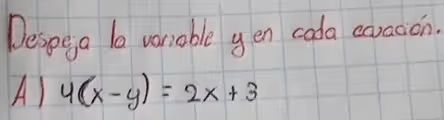 Despeja la variable y en cada ecuación.
A) 4(x-y) = 2x + 3